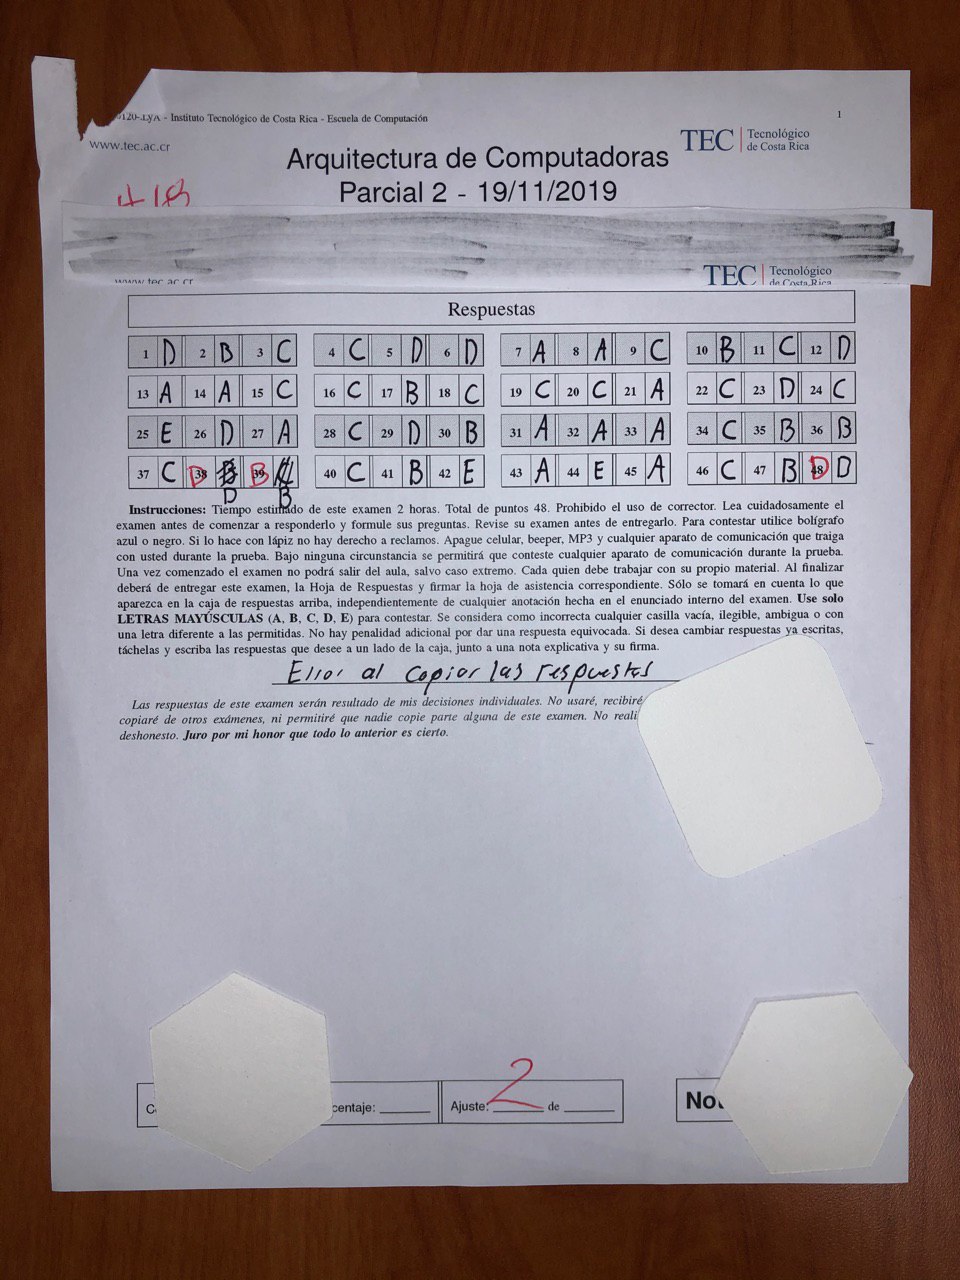 - Instituto Tecnológico de Costa Rica - Escuela de Computación
1
www.tec.ac.cr
TEC Tecnológico de Costa Rica
Arquitectura de Computadoras
Parcial 2 - 19/11/2019
www.tec.ac.cr
TEC Tecnológico
de Costa Rica
Respuestas
1 D 2 B 3 C 4 C 5 D 6 D 7 A 8 A 9 C 10 B 11 C 12 D
13 A 14 A 15 C 16 C 17 B 18 C 19 C 20 C 21 A 22 C 23 D 24 C
25 E 26 D 27 A 28 C 29 D 30 B 31 A 32 A 33 A 34 C 35 B 36 B
37 C D 38 B B 39 40 C 41 B 42 E 43 A 44 E 45 A 46 C 47 B D 48 D
D B
Instrucciones: Tiempo estimado de este examen 2 horas. Total de puntos 48. Prohibido el uso de corrector. Lea cuidadosamente el
examen antes de comenzar a responderlo y formule sus preguntas. Revise su examen antes de entregarlo. Para contestar utilice bolígrafo
azul o negro. Si lo hace con lápiz no hay derecho a reclamos. Apague celular, beeper, MP3 y cualquier aparato de comunicación que traiga
con usted durante la prueba. Bajo ninguna circunstancia se permitirá que conteste cualquier aparato de comunicación durante la prueba.
Una vez comenzado el examen no podrá salir del aula, salvo caso extremo. Cada quien debe trabajar con su propio material. Al finalizar
deberá de entregar este examen, la Hoja de Respuestas y firmar la hoja de asistencia correspondiente. Sólo se tomará en cuenta lo que
aparezca en la caja de respuestas arriba, independientemente de cualquier anotación hecha en el enunciado interno del examen. Use solo
LETRAS MAYÚSCULAS (A, B, C, D, E) para contestar. Se considera como incorrecta cualquier casilla vacía, ilegible, ambigua o con
una letra diferente a las permitidas. No hay penalidad adicional por dar una respuesta equivocada. Si desea cambiar respuestas ya escritas,
táchelas y escriba las respuestas que desee a un lado de la caja, junto a una nota explicativa y su firma.
Error al copiar las respuestas
Las respuestas de este examen serán resultado de mis decisiones individuales. No usaré, recibiré
copiaré de otros exámenes, ni permitiré que nadie copie parte alguna de este examen. No
deshonesto. Juro por mi honor que todo lo anterior es cierto.
Ajuste: 2 de